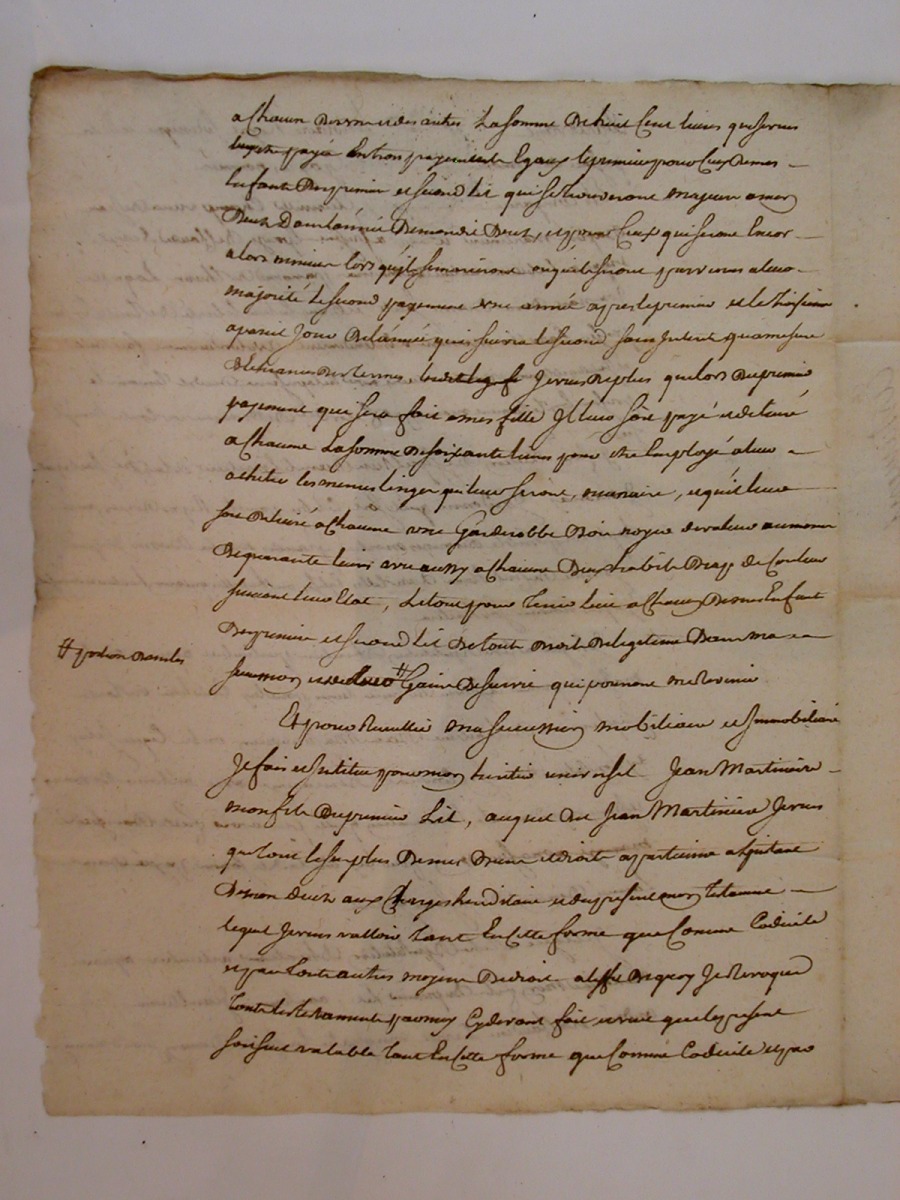 a Chacun Des uns et des autres La somme De huit Cent livres qui seront
payée En trois payements Egaux le premier pour Ceux De mes
Enfants Du premier et second lit qui se trouveront majeur a mon
Deces Dans l'année De mondit Deces, et pour Ceux qui seront Encor
alors mineur lors qu'ils se mariront ou quils seront parvenus a leur
majorité le second payement une année apres le premier et le troisieme
a pareil Jour De l'année qui suivra le second sans Interet qu'a mesure
D'Echeance Des termes, Je veux De plus que lors Du premier
payement qui sera fait a mes fille Il leur soit payé et delivré
a Chacune La somme De soixante livres pour etre Employé a leur
acheter les menus linges qui leur seront necessaire, et qu'il leur
soit Delivré a Chacune une Garderobbe Bois noyer de valeur au moins
De quarante livres avec aussy a Chacune Deux habits Drap de Couleur
suivant leur Etat, Le tout pour Tenir lieu a Chacun De mes Enfant
Du premier et second lit De tout Droit De legitime Dans ma
succession et # Gains De survie qui pourront me Revenir
# portion Dans les
Et pour Recueillir ma succession mobiliaire et Immobiliaire
Je fais et Institue pour mon heritier universel Jean Martiniere
mon fils Du premier Lit, auquel Dit Jean Martiniere Je veux
que tout le surplus De mes Biens et droits appartienne a l'Instant
De mon deces aux Charges hereditaire et du present mon Testament
lequel Je veux valloir tant En Cette forme que Comme Codicile
et par toute autres moyens De droit a l'effet De quoy Je Revoque
tout les testaments par moy Cy devant fait et veux que le present
soit seul valable tant En Cette forme que Comme Codicile et par